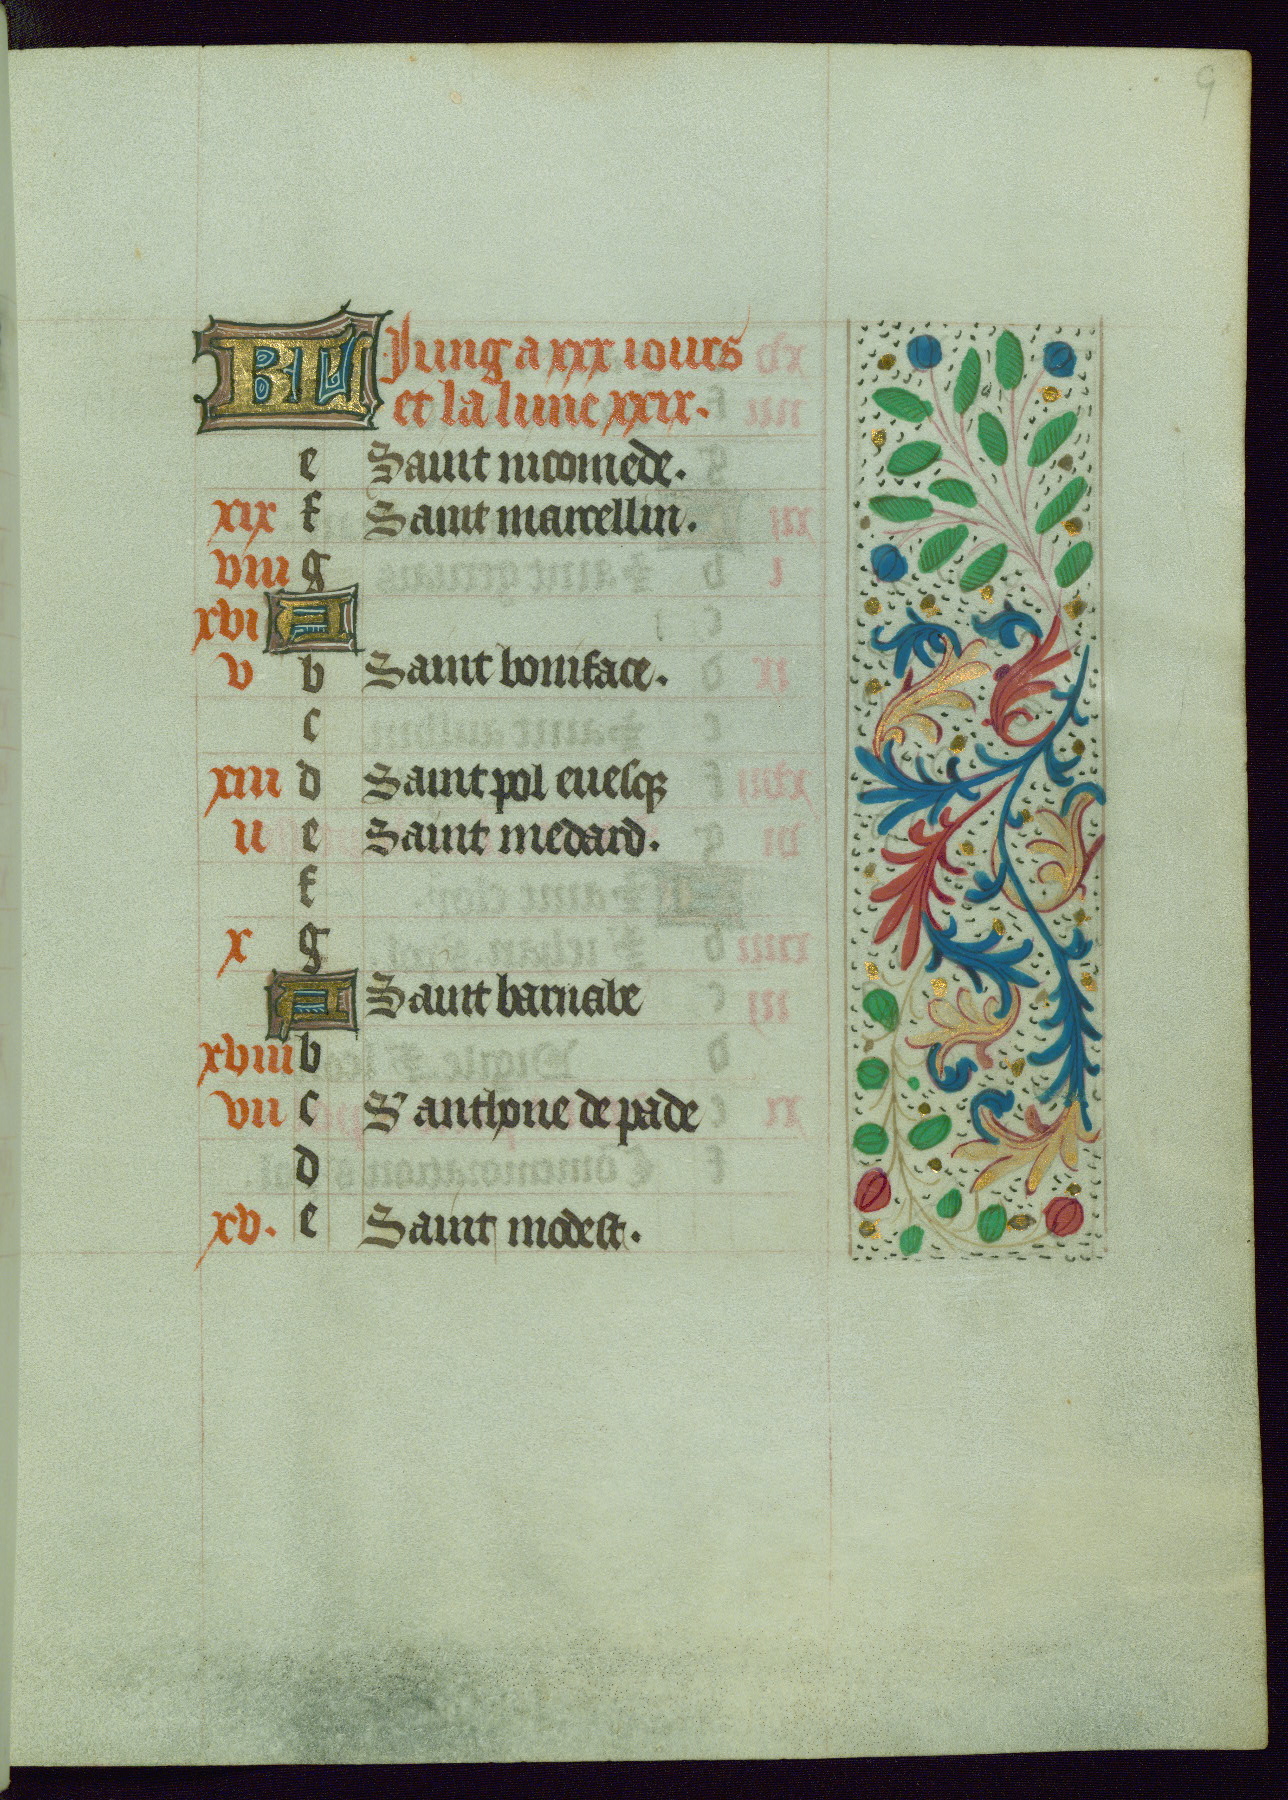 9
KL Juing a xxx iours
et la lune xxix.
e Saint nicomede.
xix f Saint marcellin.
viii g
xvi A
v b Saint boniface.
c
xiii d Saint pol euesq
ii e Saint medard.
f
x g
A Saint barnabe
xviii b
vii c S' anthone de pade
d
xv. e Saint modest.